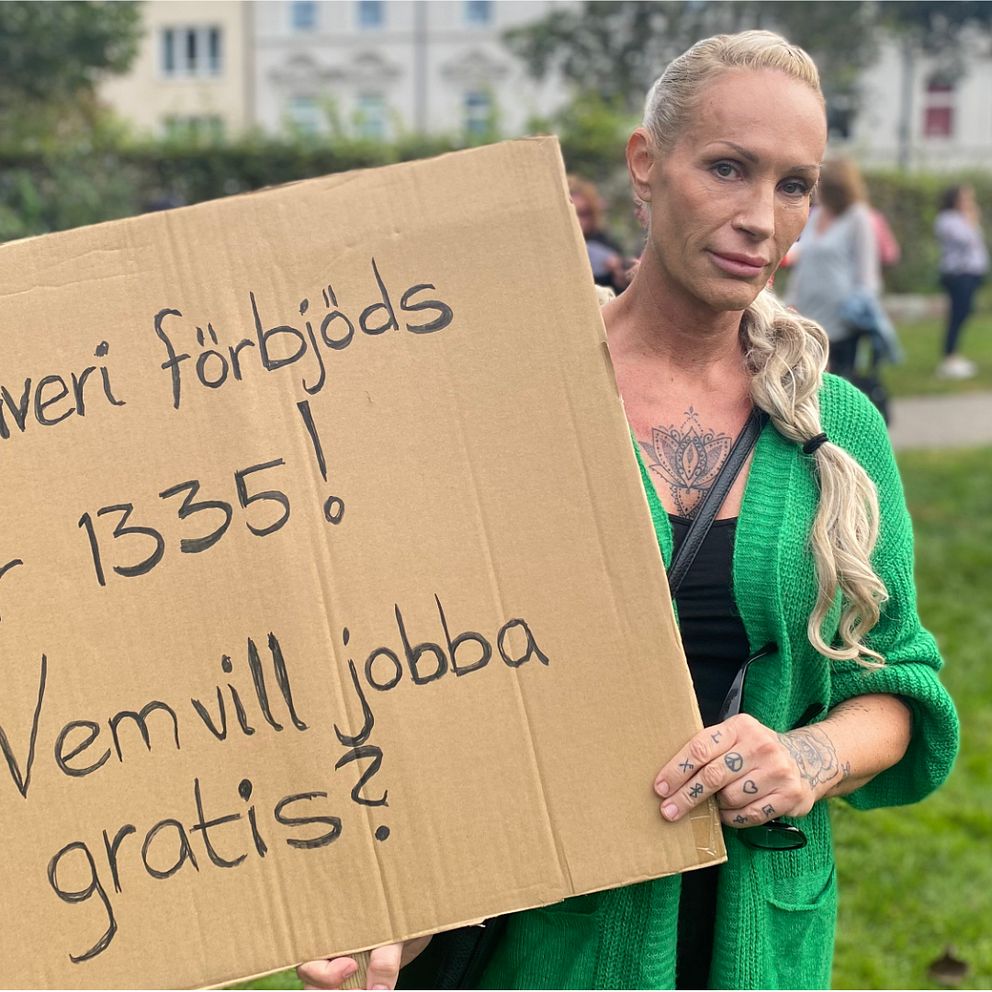 averi förbjöds
r 1335!
Vem vill jobba
gratis?